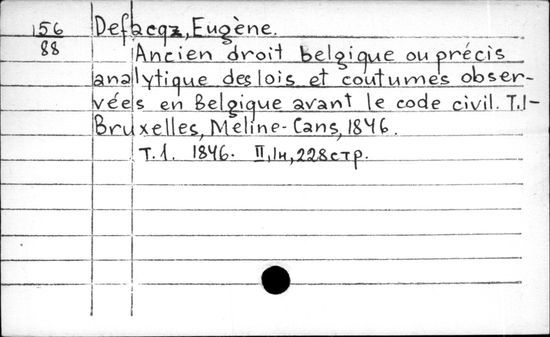 156 Defacqz, Eugène.
88 Ancien droit belgique ou précis
analytique des lois et coutumes obser-
vées en Belgique avant le code civil. T.1-
Bruxelles, Meline-Cans, 1846.
T.1. 1846. II, 1н, 228стр.